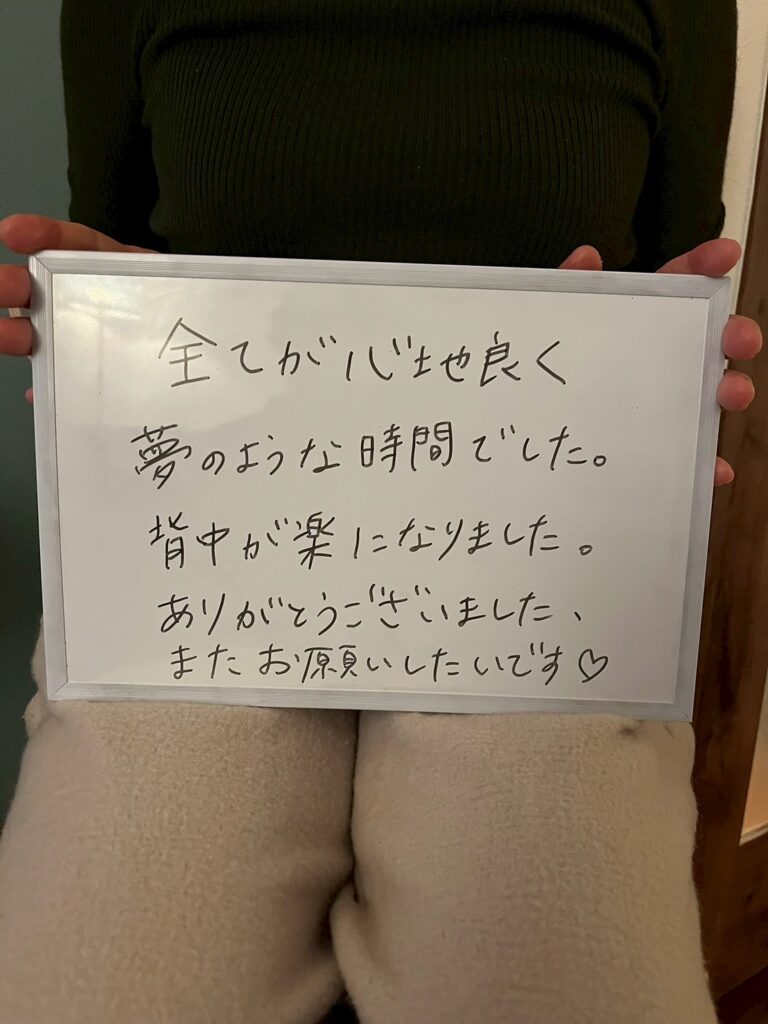 全てが心地良く
夢のような時間でした。
背中が楽になりました。
ありがとうございました、
またお願いしたいです♡